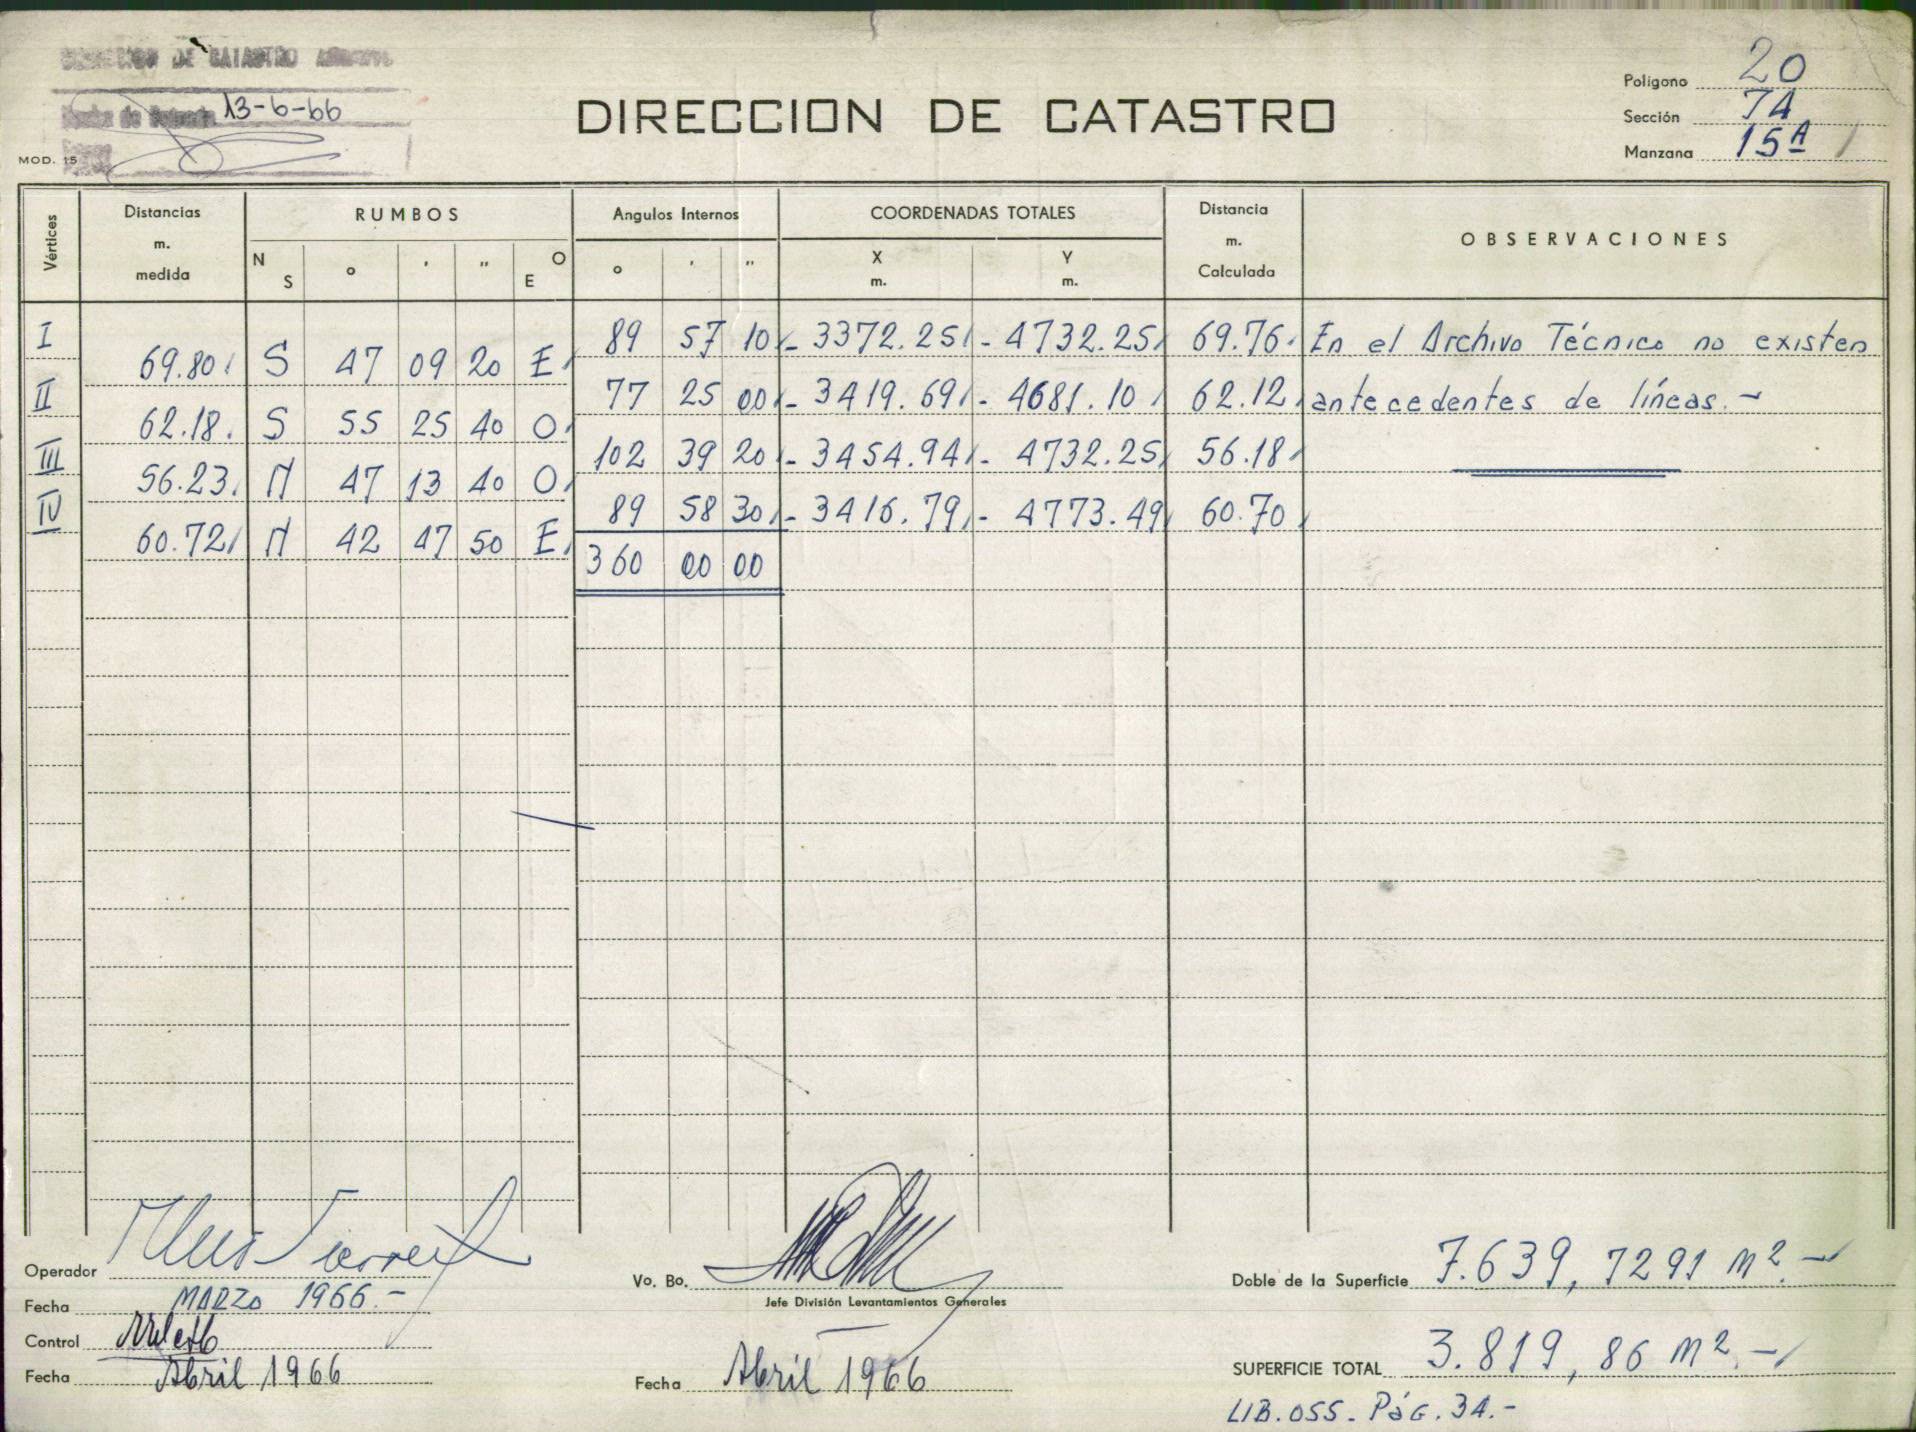 DIRECCION DE CATASTRO
13-6-66
MOD. 15
DIRECCION DE CATASTRO
Polígono 20
Sección 74
Manzana 15A
Vértices
Distancias m. medida
RUMBOS
N S ° ' " O E
Angulos Internos
° ' "
COORDENADAS TOTALES
X m. Y m.
Distancia m. Calculada
OBSERVACIONES
I 89 57 10 - 3372.25 - 4732.25 69.76 En el Archivo Técnico no existen
69.80 S 47 09 20 E
II 77 25 00 - 3419.69 - 4681.10 62.12 antecedentes de líneas.-
62.18 S 55 25 40 O
III 102 39 20 - 3454.94 - 4732.25 56.18
56.23 N 47 13 40 O
IV 89 58 30 - 3416.79 - 4773.49 60.70
60.72 N 42 47 50 E
360 00 00
Operador
Fecha MARZO 1966.-
Control
Fecha Abril 1966
Vo. Bo.
Jefe División Levantamientos Generales
Fecha Abril 1966
Doble de la Superficie 7.639,7291 m2.-
SUPERFICIE TOTAL 3.819,86 m2.-
LIB.055. Pág. 34.-